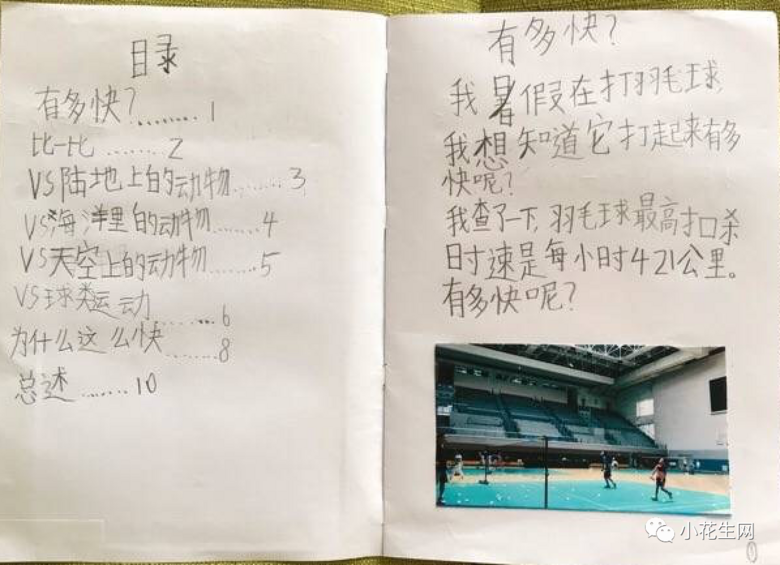 目录
有多快？........1
比一比........2
VS陆地上的动物........3
VS海洋里的动物.......4
VS天空上的动物.......5
VS球类运动........6
为什么这么快.......8
总述.......10
有多快？
我暑假在打羽毛球，
我想知道它打起来有多
快呢？
我查了一下，羽毛球最高扣杀
时速是每小时421公里。
有多快呢？
小花生网
1